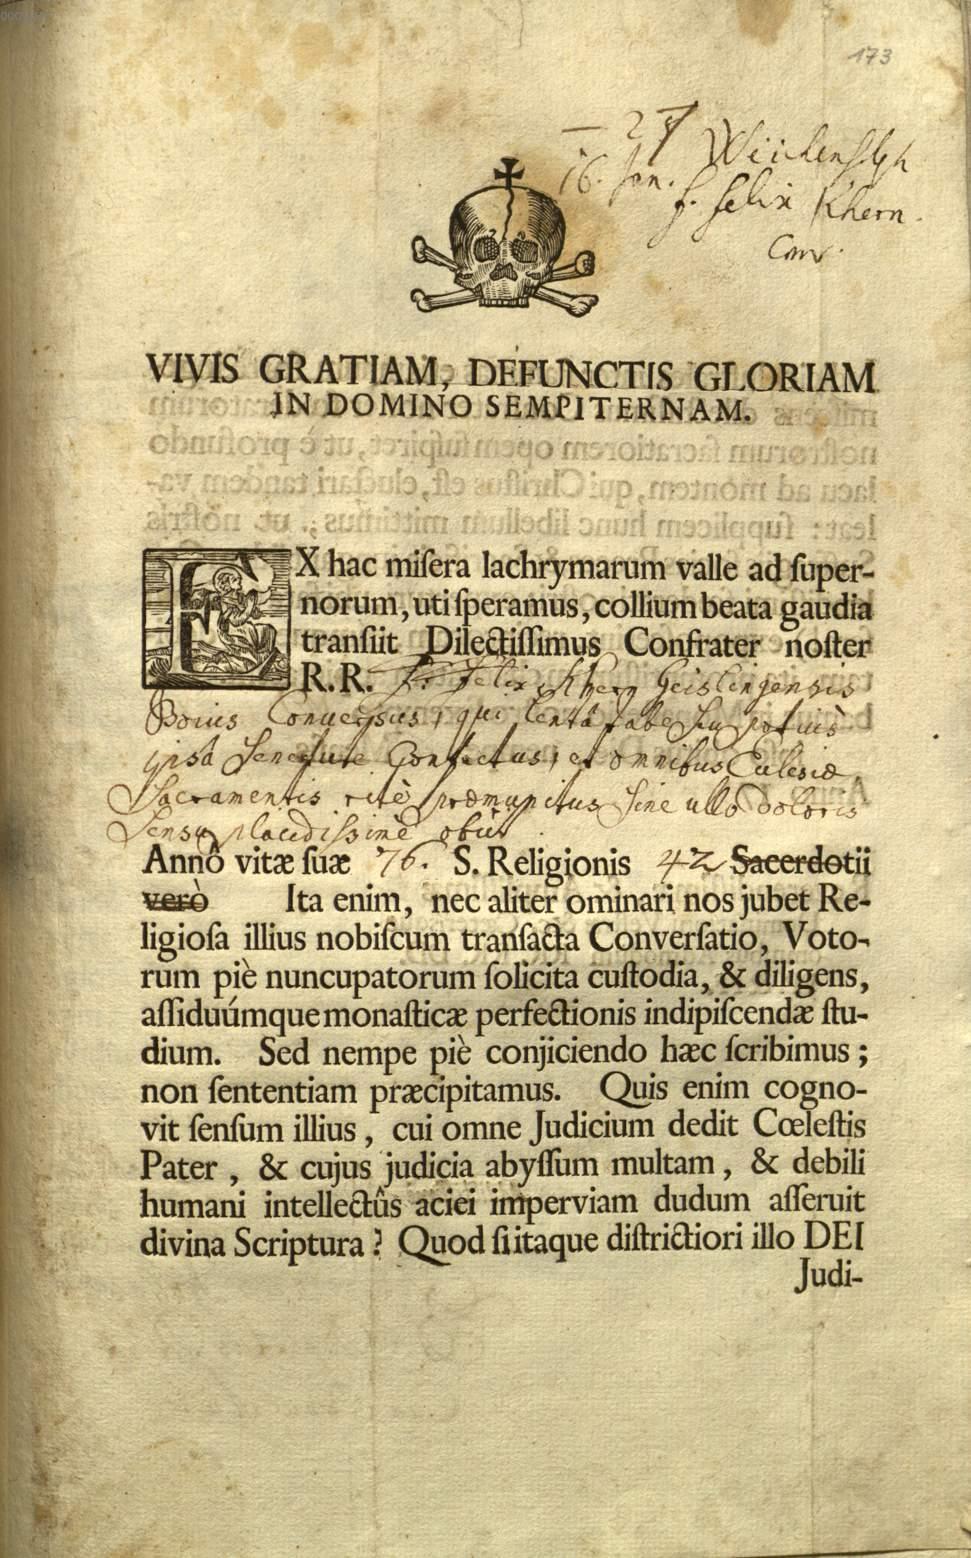 173
27
16. Jan. f. Felix Khern.
Conv.
VIVIS GRATIAM, DEFUNCTIS GLORIAM
IN DOMINO SEMPITERNAM.
EX hac miſera lachrymarum valle ad ſuper-
norum, uti ſperamus, collium beata gaudia
tranſiit Dilectiſſimus Confrater noſter
R. R. Fr. Felix Khern Geislingensis
Boius Conversus, qui lentâ tabe seu potiùs
ipsâ Senectute Confectus, et omnibus Eclesiæ
Sacramentis ritè præmunitus sine ullo doloris
sensu placidissimè obijt.
Annô vitæ ſuæ 76. S. Religionis 42 Sacerdotii
verò Ita enim, nec aliter ominari nos jubet Re-
ligioſa illius nobiſcum tranſacta Converſatio, Voto-
rum piè nuncupatorum ſolicita cuſtodia, & diligens,
aſſiduúmque monaſticæ perfectionis indipiſcendæ ſtu-
dium. Sed nempe piè conjiciendo hæc ſcribimus;
non ſententiam præcipitamus. Quis enim cogno-
vit ſenſum illius, cui omne Judicium dedit Cœleſtis
Pater, & cujus judicia abyſſum multam, & debili
humani intellectûs aciei imperviam dudum aſſeruit
divina Scriptura? Quod ſi itaque diſtrictiori illo DEI
Judi-